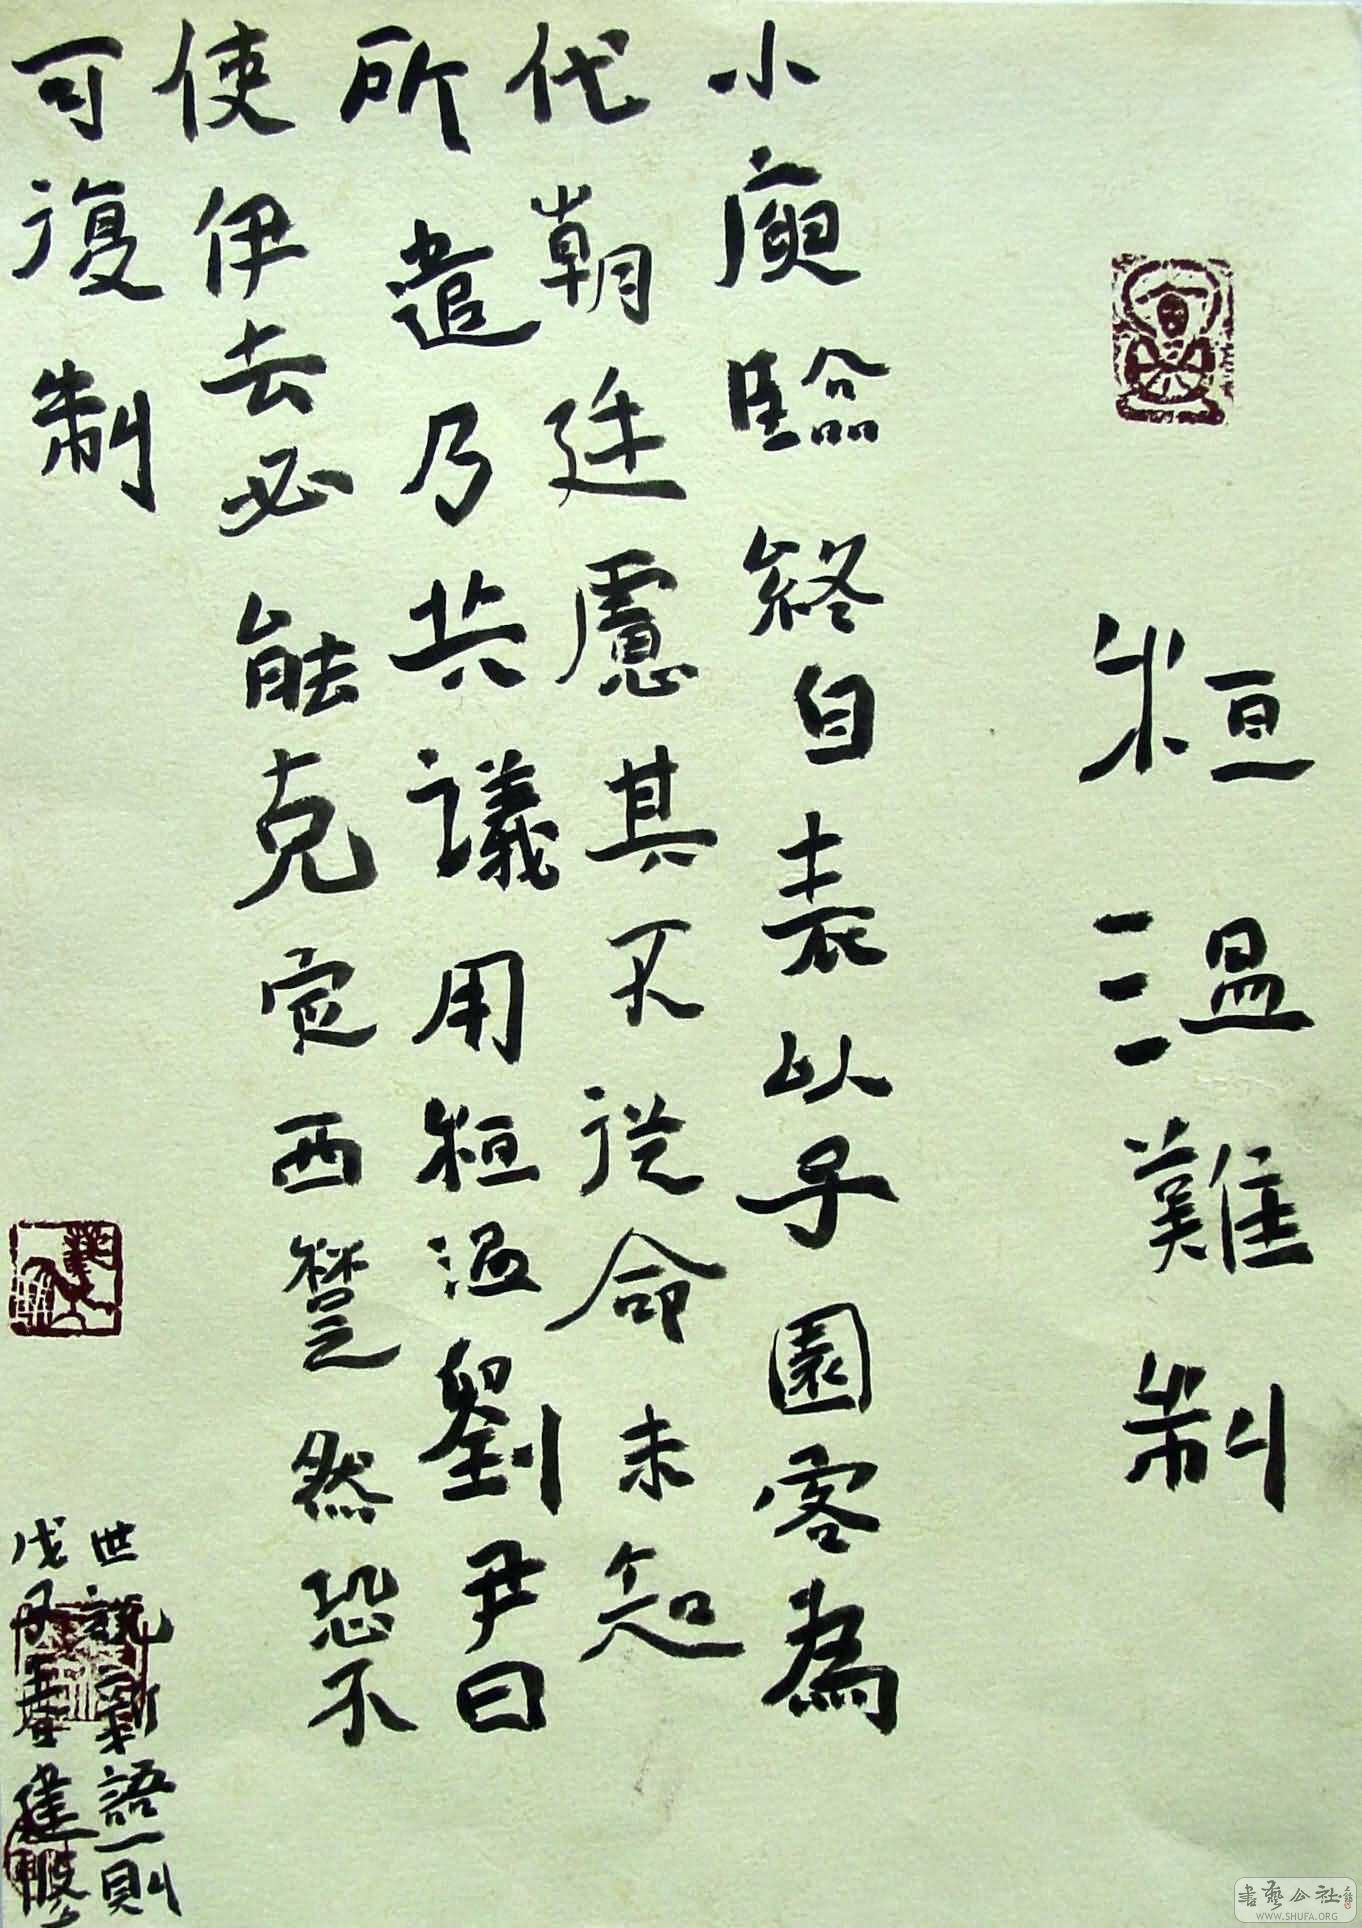 桓溫難制
小庾臨終自表以子園客為
代朝廷慮其不從命未知
所遣乃共議用桓溫劉尹曰
使伊去必能克定西楚然恐不
可復制
世說新語一則
戊子春建
書藝公社
WWW.SHUFA.ORG